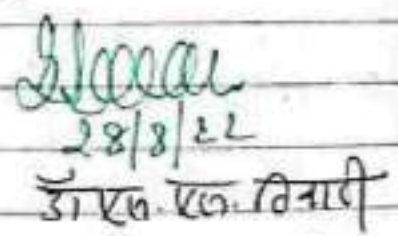 28/8/22
डॉ एल. एल. तिवारी